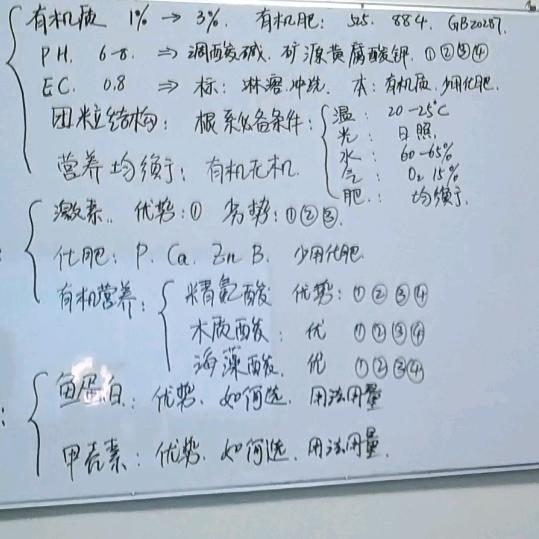 有机质 1% → 3%. 有机肥: 525. 884. GB20287.
PH. 6-8. ⇒ 调酸碱. 矿源黄腐酸钾. ①②③④
EC. 0.8 ⇒ 标: 淋溶冲洗. 本: 有机质. 少用化肥.
团粒结构: 根系必备条件:
温: 20-25℃
光: 日照.
水: 60-65%
气: O₂ 15%
肥: 均衡.
营养均衡: 有机无机.
激素. 优势: ① 劣势: ①②③.
化肥: P. Ca. Zn B. 少用化肥.
有机营养:
精氨酸 优势: ①②③④
木质酸: 优 ①②③④
海藻酸. 优 ①②③④
鱼蛋白: 优势. 如何选. 用法用量
甲壳素: 优势. 如何选. 用法用量.